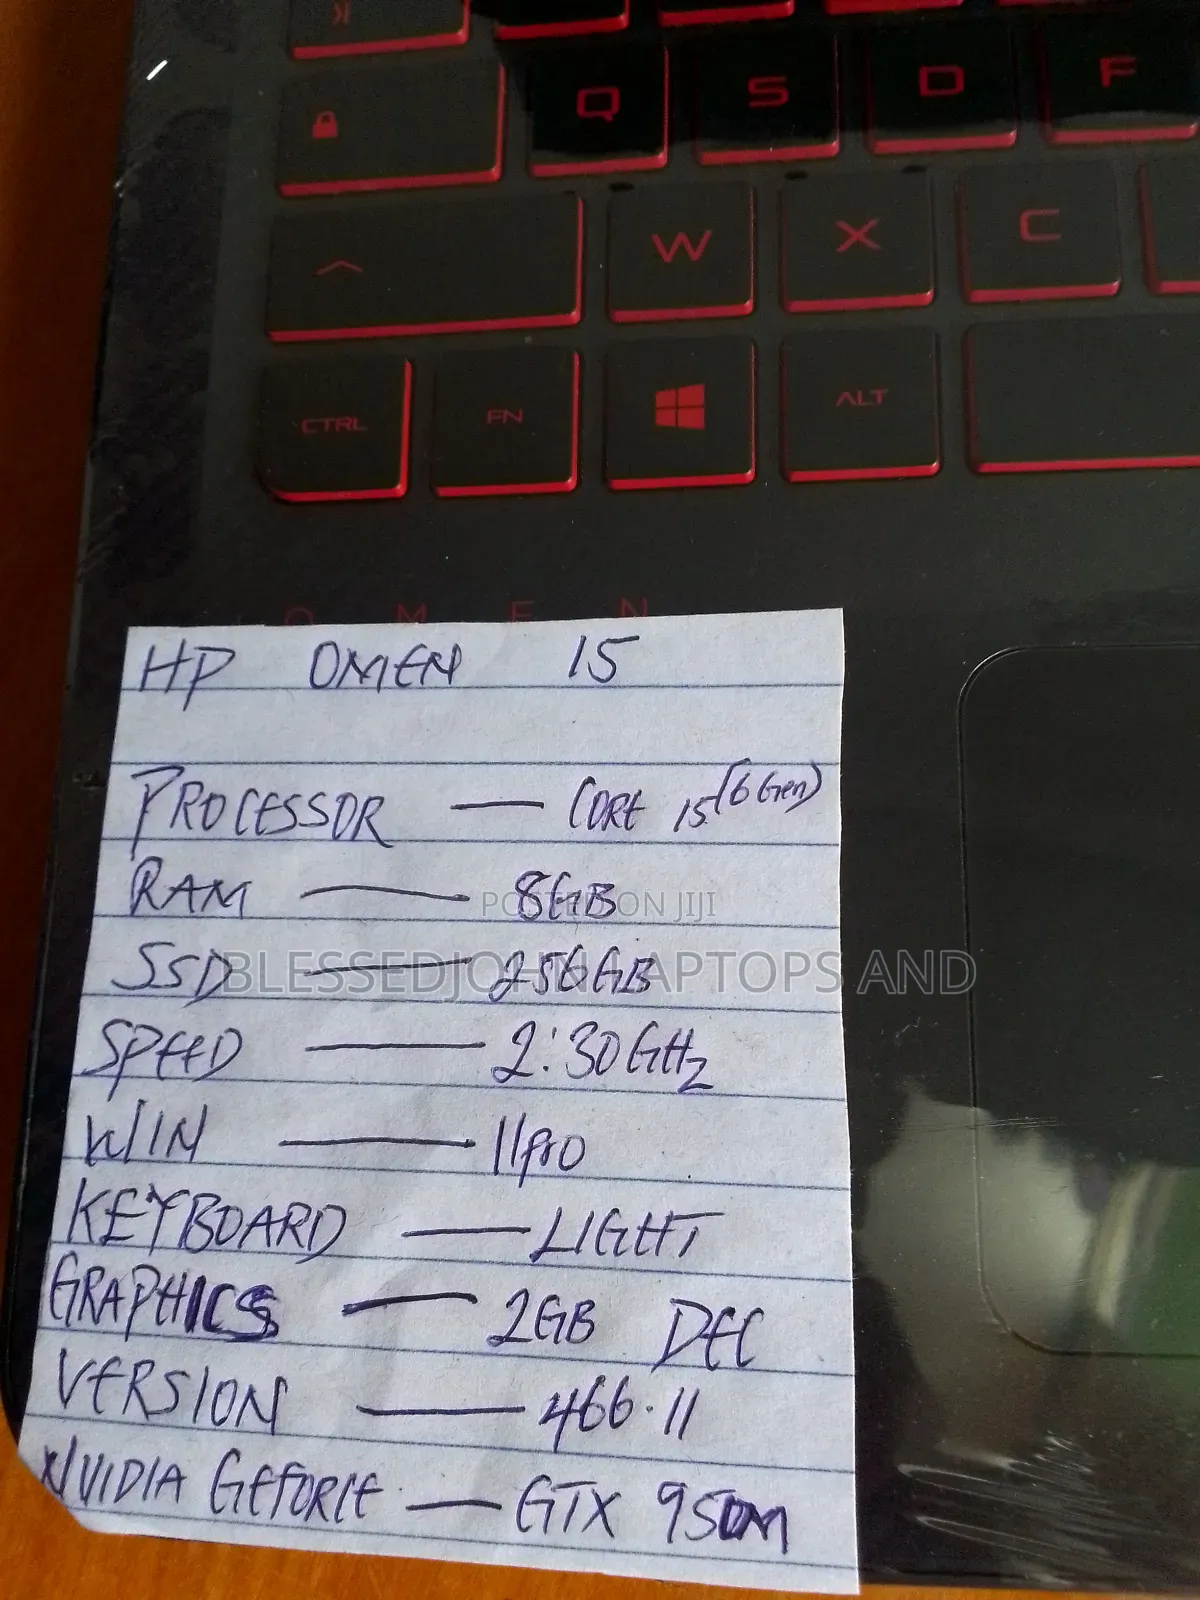 Q S D F
W X C
CTRL FN ALT
OMEN
HP OMEN 15
PROCESSOR — CORE i5 (6 Gen)
RAM — 8GB
POSTED ON JIJI
SSD — 256GB
BLESSEDJOHN LAPTOPS AND
SPEED — 2:30GHz
WIN — 11pro
KEYBOARD — LIGHT
GRAPHICS — 2GB DEC
VERSION — 466.11
NVIDIA GEFORCE — GTX 950M